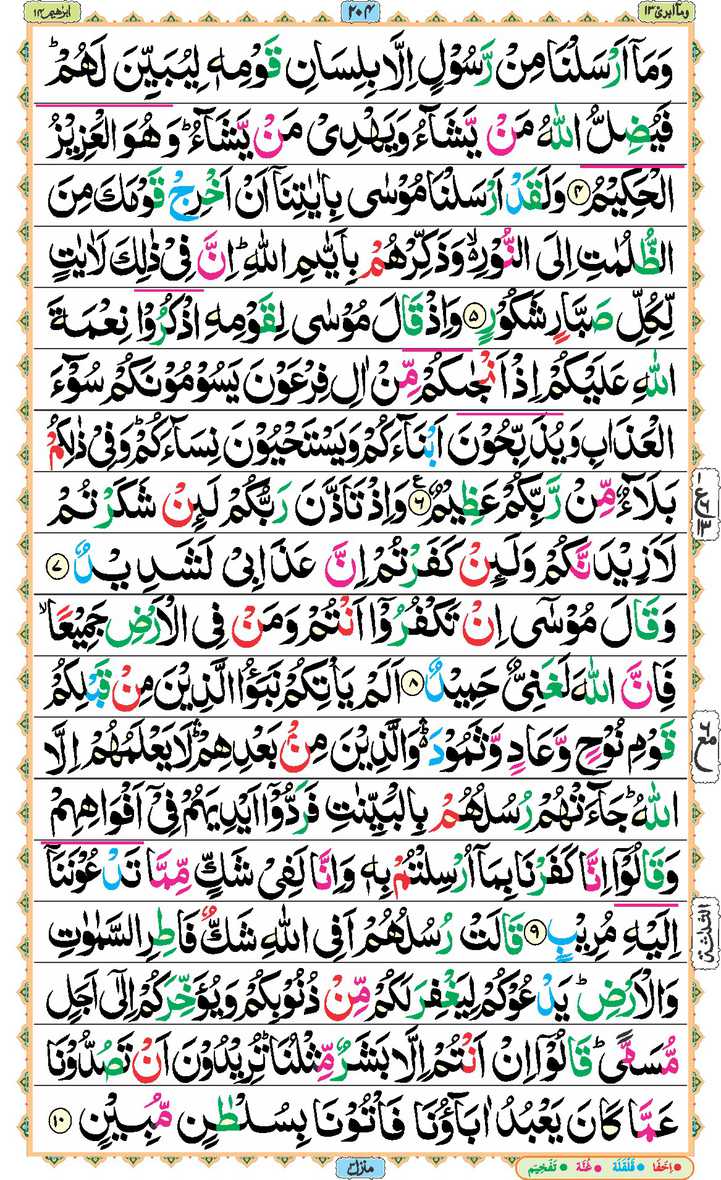 وماۤ ابرئ ١٣
٢٠٤
ابرٰهيم ١٤
وَمَاۤ اَرْسَلْنَا مِنْ رَّسُوْلٍ اِلَّا بِلِسَانِ قَوْمِهٖ لِيُبَيِّنَ لَهُمْ ؕ
فَيُضِلُّ اللّٰهُ مَنْ يَّشَآءُ وَيَهْدِىْ مَنْ يَّشَآءُ ؕ وَهُوَ الْعَزِيْزُ
الْحَكِيْمُ ﴿۴﴾ وَلَقَدْ اَرْسَلْنَا مُوْسٰى بِاٰيٰتِنَاۤ اَنْ اَخْرِجْ قَوْمَكَ مِنَ
الظُّلُمٰتِ اِلَى النُّوْرِ ۙ وَذَكِّرْهُمْ بِاَيّٰىمِ اللّٰهِ ؕ اِنَّ فِىْ ذٰلِكَ لَاٰيٰتٍ
لِّكُلِّ صَبَّارٍ شَكُوْرٍ ﴿۵﴾ وَاِذْ قَالَ مُوْسٰى لِقَوْمِهِ اذْكُرُوْا نِعْمَةَ
اللّٰهِ عَلَيْكُمْ اِذْ اَنْجٰىكُمْ مِّنْ اٰلِ فِرْعَوْنَ يَسُوْمُوْنَكُمْ سُوْٓءَ
الْعَذَابِ وَيُذَبِّحُوْنَ اَبْنَآءَكُمْ وَيَسْتَحْيُوْنَ نِسَآءَكُمْ ؕ وَفِىْ ذٰلِكُمْ
بَلَآءٌ مِّنْ رَّبِّكُمْ عَظِيْمٌ ﴿۶﴾ ع وَاِذْ تَاَذَّنَ رَبُّكُمْ لَئِنْ شَكَرْتُمْ
لَاَزِيْدَنَّكُمْ وَلَئِنْ كَفَرْتُمْ اِنَّ عَذَابِىْ لَشَدِيْدٌ ﴿۷﴾
وَقَالَ مُوْسٰٓى اِنْ تَكْفُرُوْۤا اَنْتُمْ وَمَنْ فِى الْاَرْضِ جَمِيْعًا ۙ
فَاِنَّ اللّٰهَ لَغَنِىٌّ حَمِيْدٌ ﴿۸﴾ اَلَمْ يَاْتِكُمْ نَبَؤُا الَّذِيْنَ مِنْ قَبْلِكُمْ
قَوْمِ نُوْحٍ وَّعَادٍ وَّثَمُوْدَ ۛؕ وَالَّذِيْنَ مِنْۢ بَعْدِهِمْ ۛؕ لَا يَعْلَمُهُمْ اِلَّا
اللّٰهُ ؕ جَآءَتْهُمْ رُسُلُهُمْ بِالْبَيِّنٰتِ فَرَدُّوْۤا اَيْدِيَهُمْ فِىْۤ اَفْوَاهِهِمْ
وَقَالُوْۤا اِنَّا كَفَرْنَا بِمَاۤ اُرْسِلْتُمْ بِهٖ وَاِنَّا لَفِىْ شَكٍّ مِّمَّا تَدْعُوْنَنَاۤ
اِلَيْهِ مُرِيْبٍ ﴿۹﴾ قَالَتْ رُسُلُهُمْ اَفِى اللّٰهِ شَكٌّ فَاطِرِ السَّمٰوٰتِ
وَالْاَرْضِ ؕ يَدْعُوْكُمْ لِيَغْفِرَ لَكُمْ مِّنْ ذُنُوْبِكُمْ وَيُؤَخِّرَكُمْ اِلٰٓى اَجَلٍ
مُّسَمًّى ؕ قَالُوْۤا اِنْ اَنْتُمْ اِلَّا بَشَرٌ مِّثْلُنَا ؕ تُرِيْدُوْنَ اَنْ تَصُدُّوْنَا
عَمَّا كَانَ يَعْبُدُ اٰبَآؤُنَا فَاْتُوْنَا بِسُلْطٰنٍ مُّبِيْنٍ ﴿۱۰﴾
الثلثة
منزل ٣
اِخفَا • قَلْقَلَه • غُنَّه • تَفْخِيْم